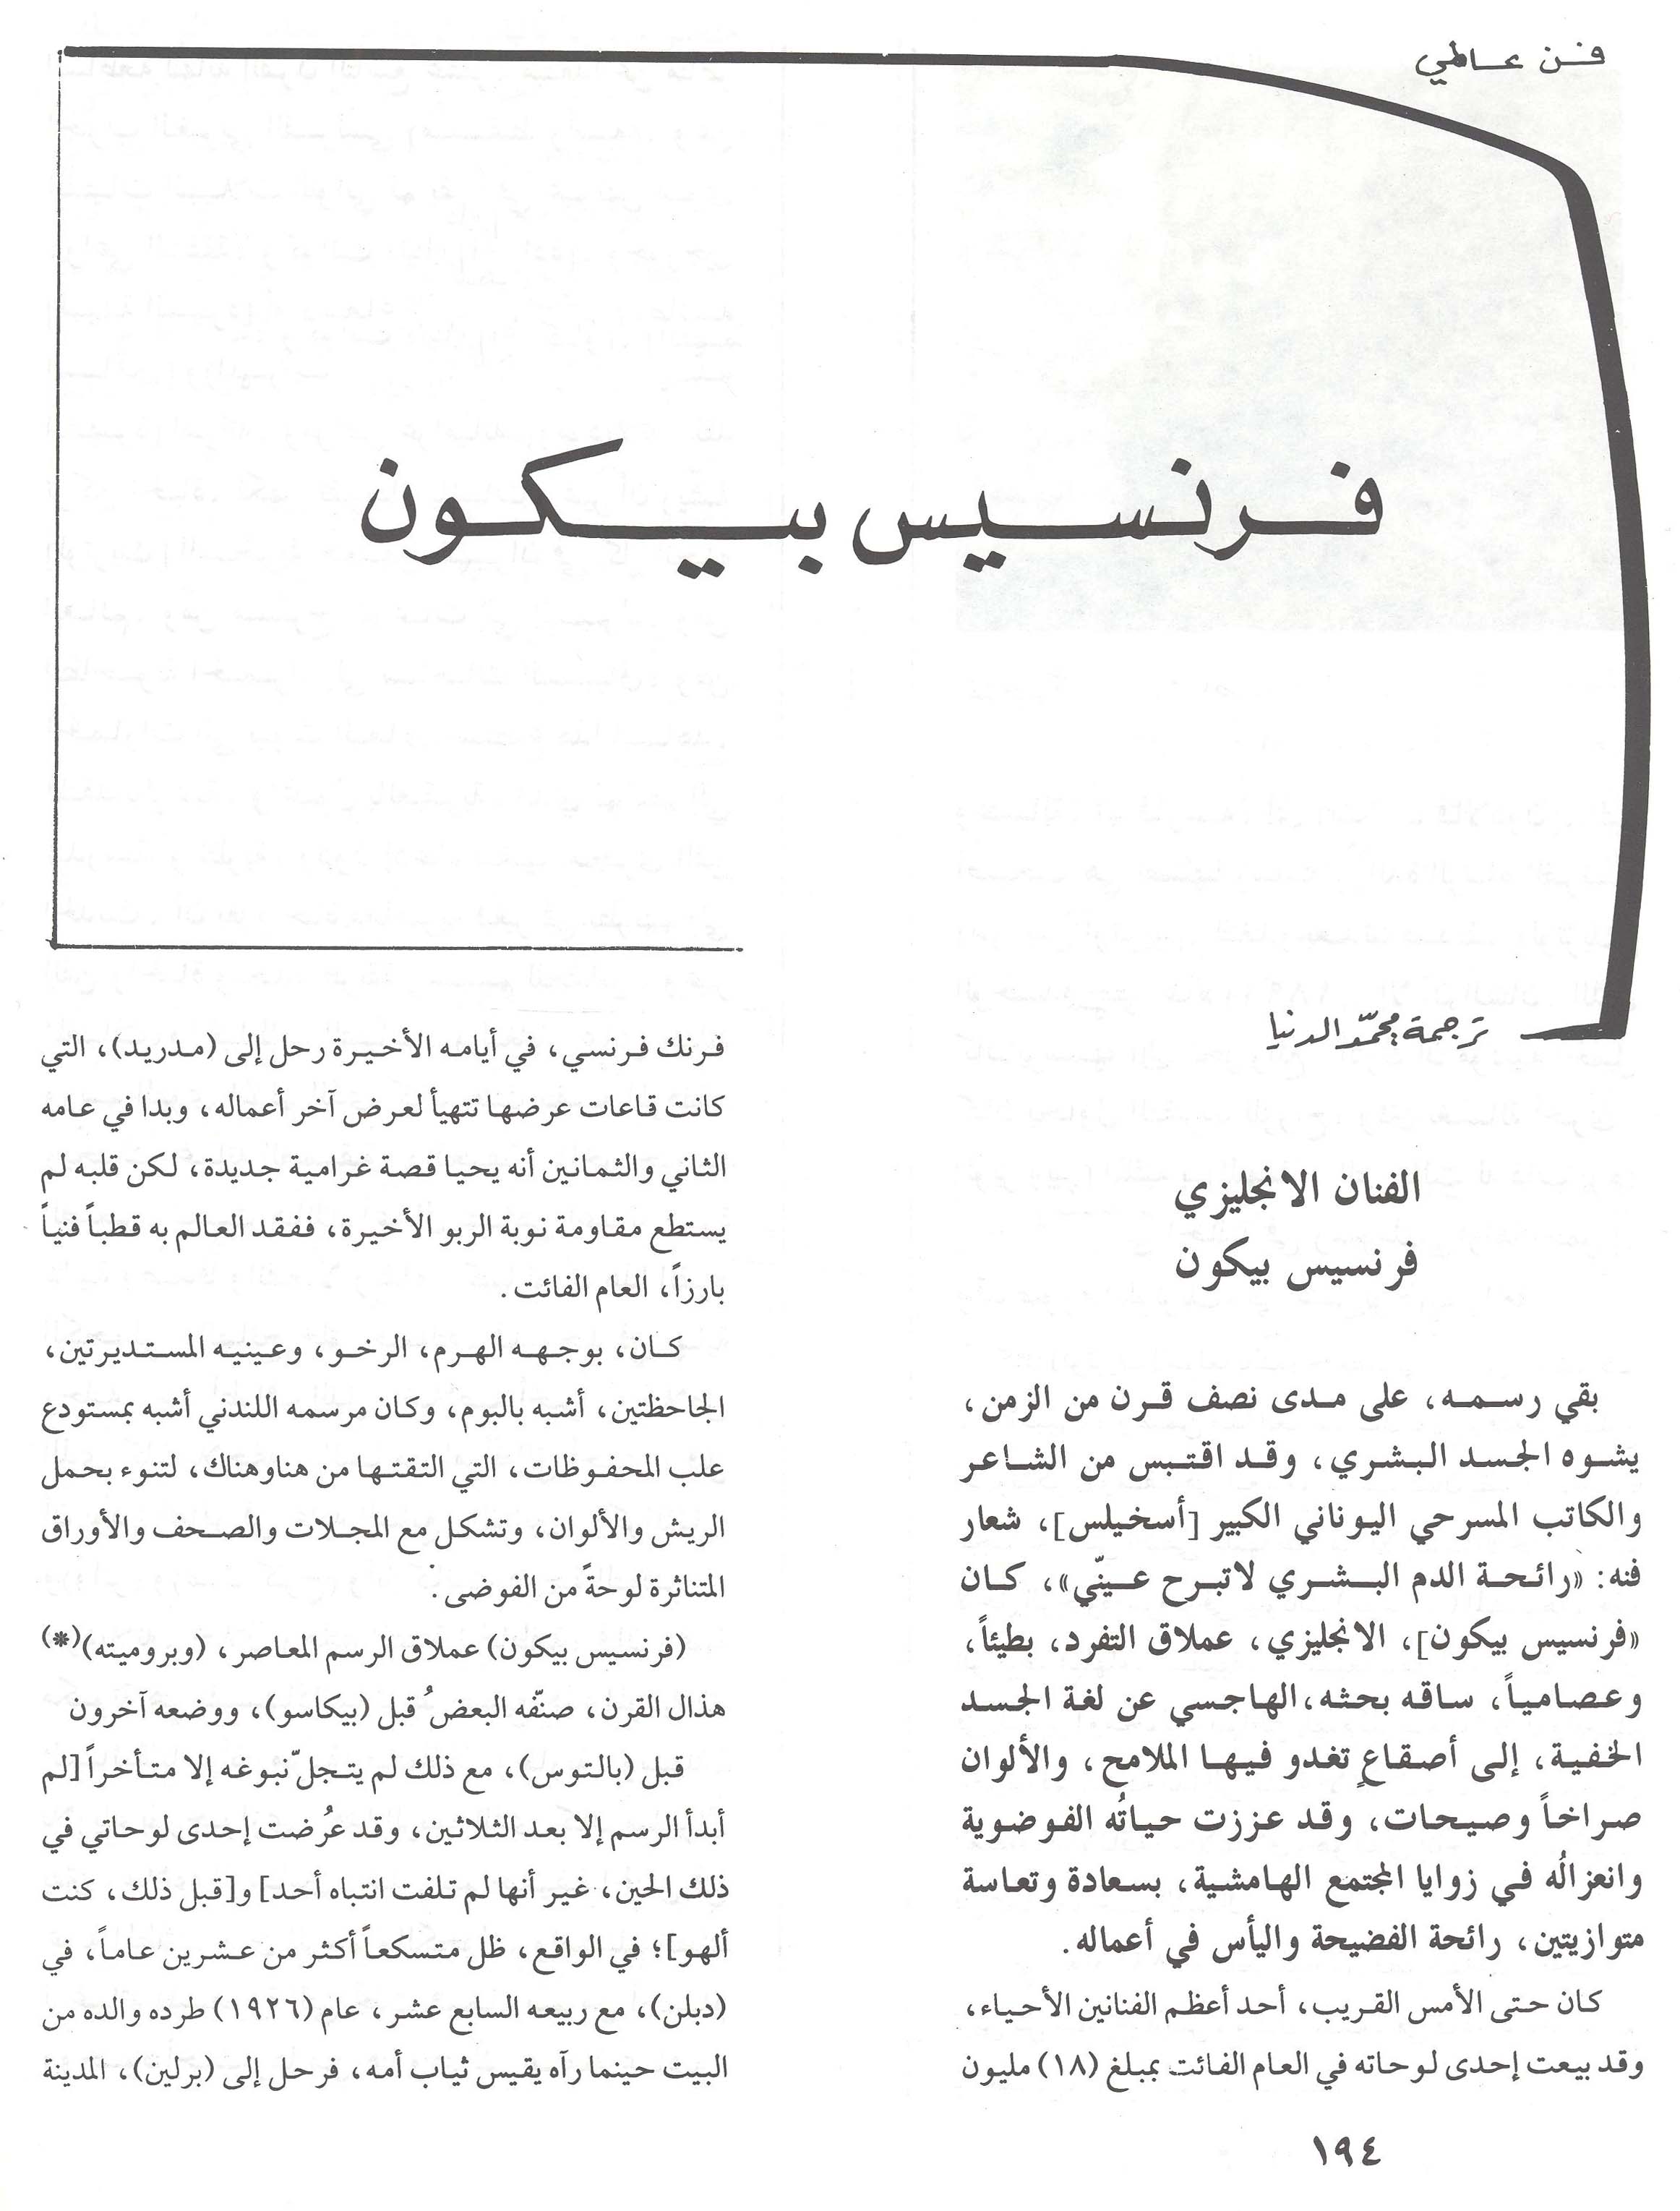 فن عالمي
فرنسيس بيكون
ترجمة: محمّد الدنيا
الفنان الانجليزي
فرنسيس بيكون
بقي رسمه، على مدى نصف قرن من الزمن،
يشوه الجسد البشري، وقد اقتبس من الشاعر
والكاتب المسرحي اليوناني الكبير [أسخيلس]، شعار
فنه: «رائحة الدم البشري لاتبرح عينّي»، كان
«فرنسيس بيكون]، الانجليزي، عملاق التفرد، بطيئاً،
وعصامياً، ساقه بحثه، الهاجسي عن لغة الجسد
الخفية، إلى أصقاعٍ تغدو فيها الملامح، والألوان
صراخاً وصيحات، وقد عززت حياتُه الفوضوية
وانعزالُه في زوايا المجتمع الهامشية، بسعادة وتعاسة
متوازيتين، رائحة الفضيحة واليأس في أعماله.
كان حتى الأمس القريب، أحد أعظم الفنانين الأحياء،
وقد بيعت إحدى لوحاته في العام الفائت بمبلغ (١٨) مليون
فرنك فرنسي، في أيامه الأخيرة رحل إلى (مدريد)، التي
كانت قاعات عرضها تتهيأ لعرض آخر أعماله، وبدا في عامه
الثاني والثمانين أنه يحيا قصة غرامية جديدة، لكن قلبه لم
يستطع مقاومة نوبة الربو الأخيرة، ففقد العالم به قطباً فنياً
بارزاً، العام الفائت.
كان، بوجهه الهرم، الرخو، وعينيه المستديرتين،
الجاحظتين، أشبه بالبوم، وكان مرسمه اللندني أشبه بمستودع
علب المحفوظات، التي التقتها من هناوهناك، لتنوء بحمل
الريش والألوان، وتشكل مع المجلات والصحف والأوراق
المتناثرة لوحةً من الفوضى.
(فرنسيس بيكون) عملاق الرسم المعاصر، (وبروميته)(*)
هذال القرن، صنّفه البعضُ قبل (بيكاسو)، ووضعه آخرون
قبل (بالتوس)، مع ذلك لم يتجلّ نبوغه إلا متأخراً [لم
أبدأ الرسم إلا بعد الثلاثين، وقد عُرضت إحدى لوحاتي في
ذلك الحين، غير أنها لم تلفت انتباه أحد] و[قبل ذلك، كنت
ألهو]؛ في الواقع، ظل متسكعاً أكثر من عشرين عاماً، في
(دبلن)، مع ربيعه السابع عشر، عام (١٩٢٦) طرده والده من
البيت حينما رآه يقيس ثياب أمه، فرحل إلى (برلين)، المدينة
١٩٤